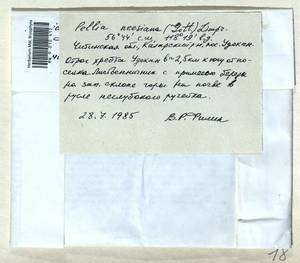 Pellia neesiana (Gott.) Limpr.
56°44' с.ш, 118°19' в.д.
Читинская обл, Каларский р-н, пос. Удокан.
Отрог хребта Удокан в ~ 2,5 км к югу от по-
селка. Лиственничник с примесью березы
на зап. склоне горы. На почве в
русле неглубокого ручейка.
28.7.1985
В.Р. Филин
18